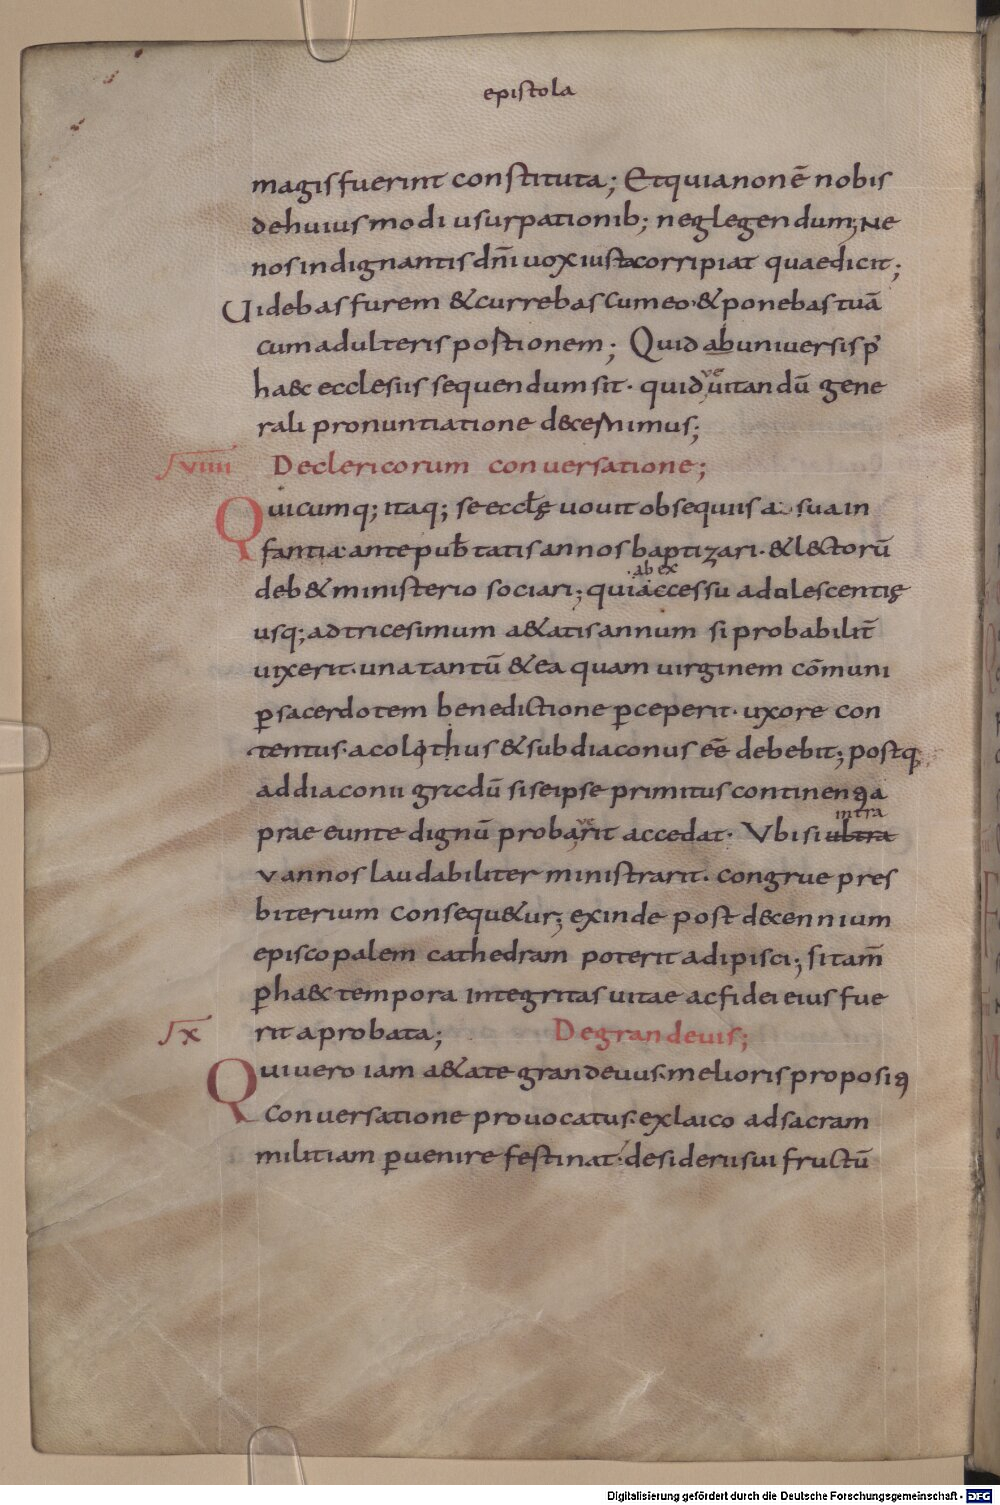 epistola
magis fuerint constituta; Et quia non ē nobis
de huius modi usurpationib; neglegendum; Ne
nos indignantis dn̄i uox iusta corripiat quae dicit;
Uidebas furem & currebas cum eo· & ponebas tuā
cum adulteris postionem; Quid ab uniuersis p̄
ha&c ecclesiis sequendum sit· quid ve uitandū gene
rali pronuntiatione decernimus;
VIIII De clericorum conuersatione;
Quicumq; itaq; se eccłę uouit obsequiis a sua in
fantia· ante pub̄tatis annos baptizari· & lectorū
deb& ministerio sociari; qui accessu adulescentię
ab ex
usq; ad tricesimum a&atis annum si probabilit̄
uixerit· una tantū & ea quam uirginem cōmuni
ꝑ sacerdotem benedictione ꝑceperit· uxore con
tentus· acolothus & subdiaconus eē debebit; postq
ad diaconii gradū si se ipse primitus continentia
prae eunte dignū probarit ve accedat· Ubi si ultra
intra
v annos laudabiliter ministrarit· congrue pres
biterium consequ&ur; exinde post decennium
episcopalem cathedram poterit adipisci; si tam̄
ꝑ ha&c tempora integritas uitae ac fidei eius fue
rit aprobata; De grandeuis;
X
Qui uero iam a&ate grandeuus· melioris propositi
conuersatione prouocatus· ex laico ad sacram
militiam ꝑuenire festinat· desiderii sui fructū
Digitalisierung gefördert durch die Deutsche Forschungsgemeinschaft - DFG